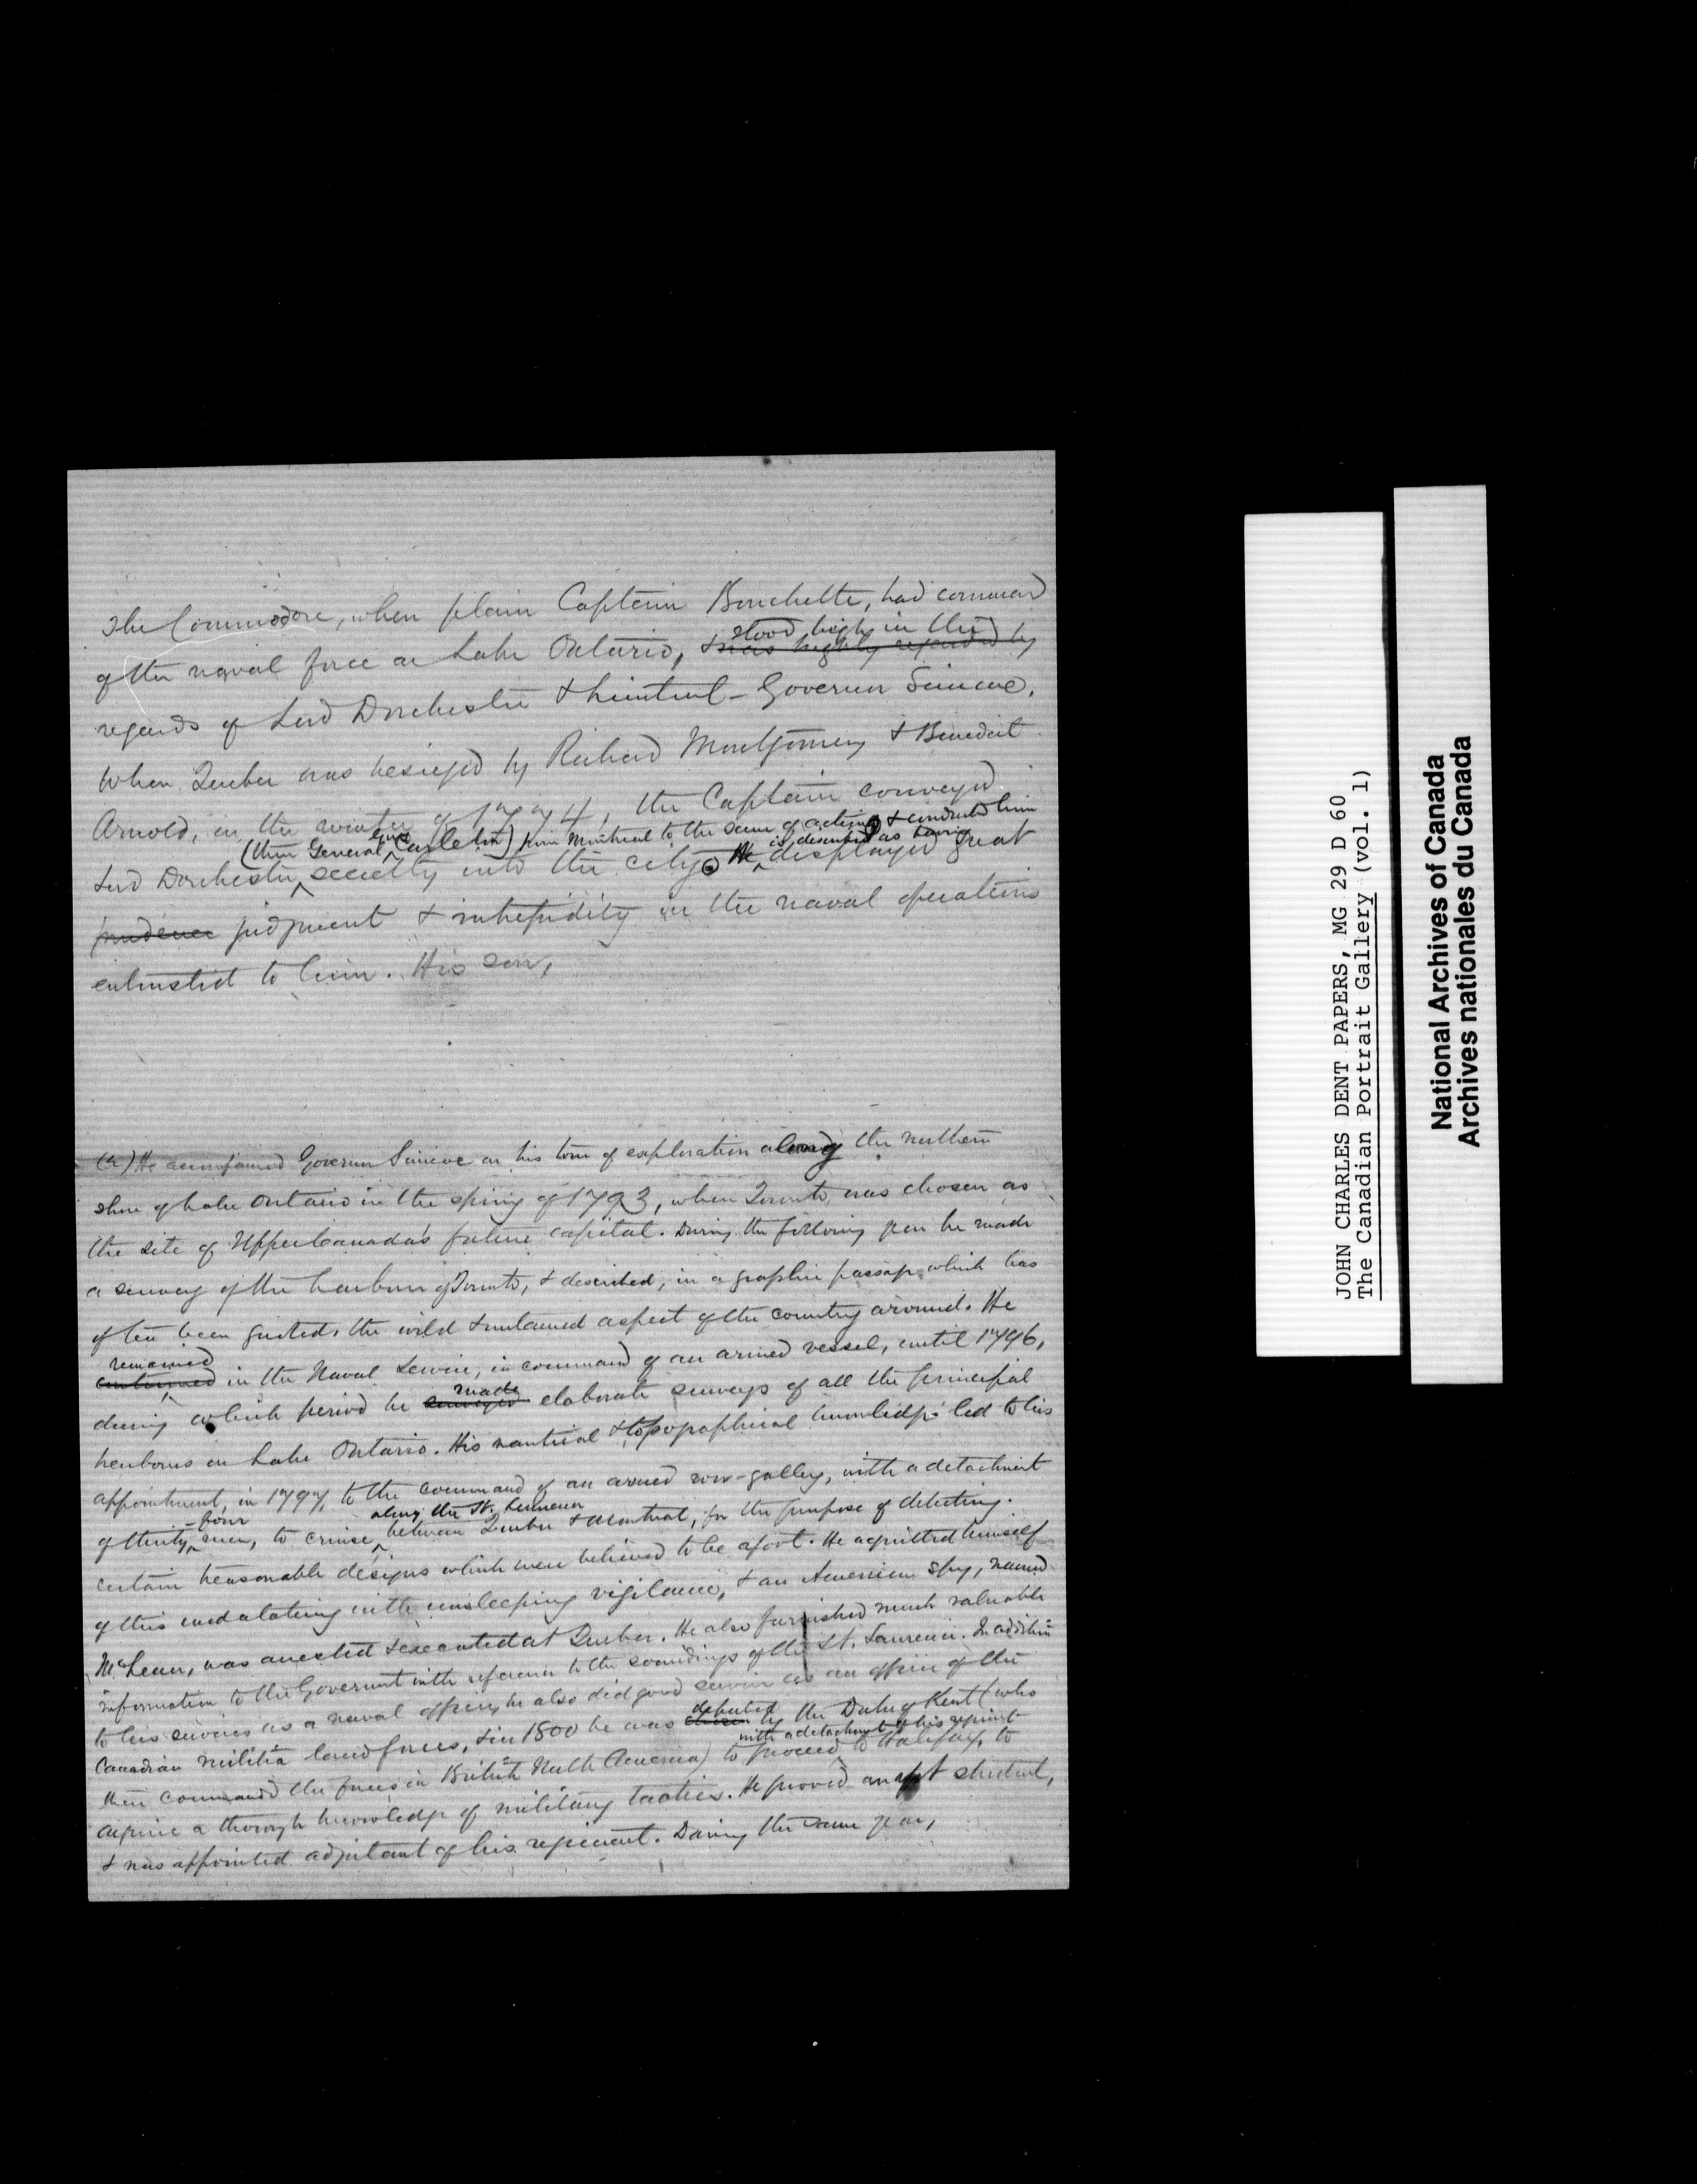 The Commodore, when plain Captain Bouchette, had command
of the naval force on Lake Ontario, & stood high in the was highly regarded by
regards of Lord Dorchester & Lieutent-Governor Simcoe.
When Quebec was besieged by Richard Montgomery & Benedict
Arnold, in the winter of 1774, the Captain conveyed
(then General Carleton) from Montreal to the scene of action, & conducted him
Lord Dorchester secretly into the city. He is described as having displayed great
prudence judgment & intrepidity in the naval operations
entrusted to him. His son,
(a) He accompanied Governor Simcoe on his tour of exploration along the northern
shore of Lake Ontario in the spring of 1793, when Toronto was chosen as
the site of Upper Canada's future capital. During the following year he made
a survey of the harbour of Toronto, & described, in a graphic passage which has
often been quoted, the wild & untamed aspect of the country around. He
remained
continued in the Naval Service, in command of an armed vessel, until 1796,
during which period he surveyed made elaborate surveys of all the principal
harbours on Lake Ontario. His nautical & topographical knowledge led to his
appointment, in 1797, to the command of an armed row-galley, with a detachment
of thirty-four men, to cruise along the St. Lawrence between Quebec & Montreal, for the purpose of detecting
certain treasonable designs which were believed to be afoot. He acquitted himself
of this undertaking with unsleeping vigilance, & an American spy, named
McLean, was arrested & executed at Quebec. He also furnished much valuable
information to the Government with reference to the soundings of the St. Lawrence. In addition
to his services as a naval officer, he also did good service as an officer of the
Canadian militia land forces, & in 1800 he was chosen deputed by the Duke of Kent (who
then commanded the forces in British North America) to proceed with a detachment of his regiment to Halifax, to
acquire a thorough knowledge of military tactics. He proved an apt student,
& was appointed adjutant of his regiment. During the same year,
JOHN CHARLES DENT PAPERS, MG 29 D 60
The Canadian Portrait Gallery (vol. 1)
National Archives of Canada
Archives nationales du Canada